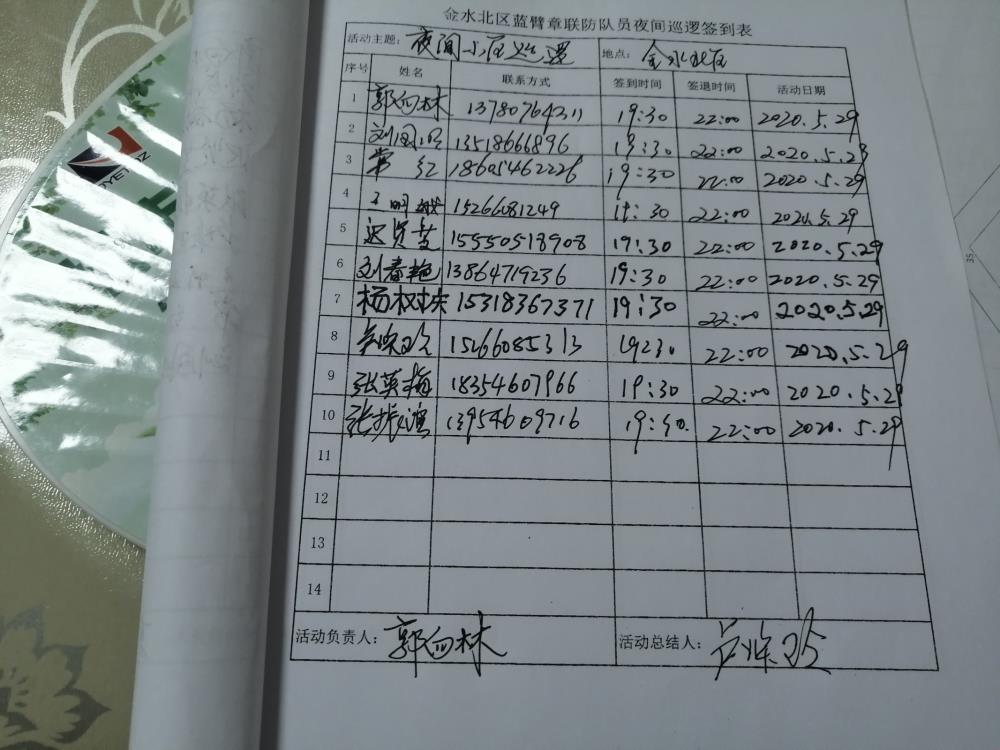 金水北区蓝臂章联防队员夜间巡逻签到表
活动主题: 夜间小区巡逻 地点: 金水北区
序号 姓名 联系方式 签到时间 签退时间 活动日期
1 郭向林 13780764211 19:30 22:00 2020.5.29
2 13518666896 19:30 22:00 2020.5.29
3 常红 18605462226 19:30 22:00 2020.5.29
4 15266081249 19:30 22:00 2020.5.29
5 迟贤芝 15550518908 19:30 22:00 2020.5.29
6 刘春艳 13864719236 19:30 22:00 2020.5.29
7 杨权 15318367371 19:30 22:00 2020.5.29
8 15266085313 19:30 22:00 2020.5.29
9 张英梅 18354607966 19:30 22:00 2020.5.29
10 张振 13954609716 19:30 22:00 2020.5.29
11
12
13
14
活动负责人: 郭向林 活动总结人:
35